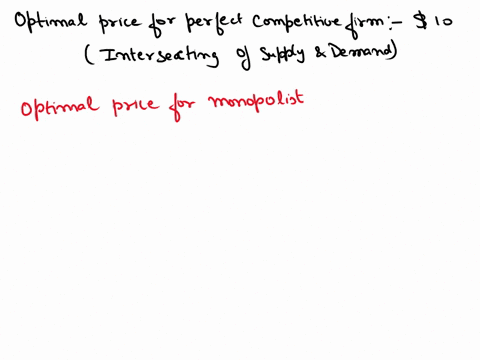 Optimal price for perfect competitive firm:- $10
(Intersecting of Supply & Demand)
Optimal price for monopolist